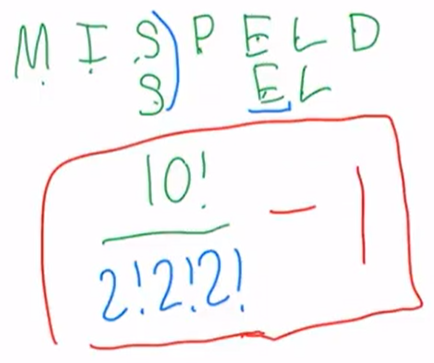 M I S P E L D
S E L
10!
2!2!2!
- 1